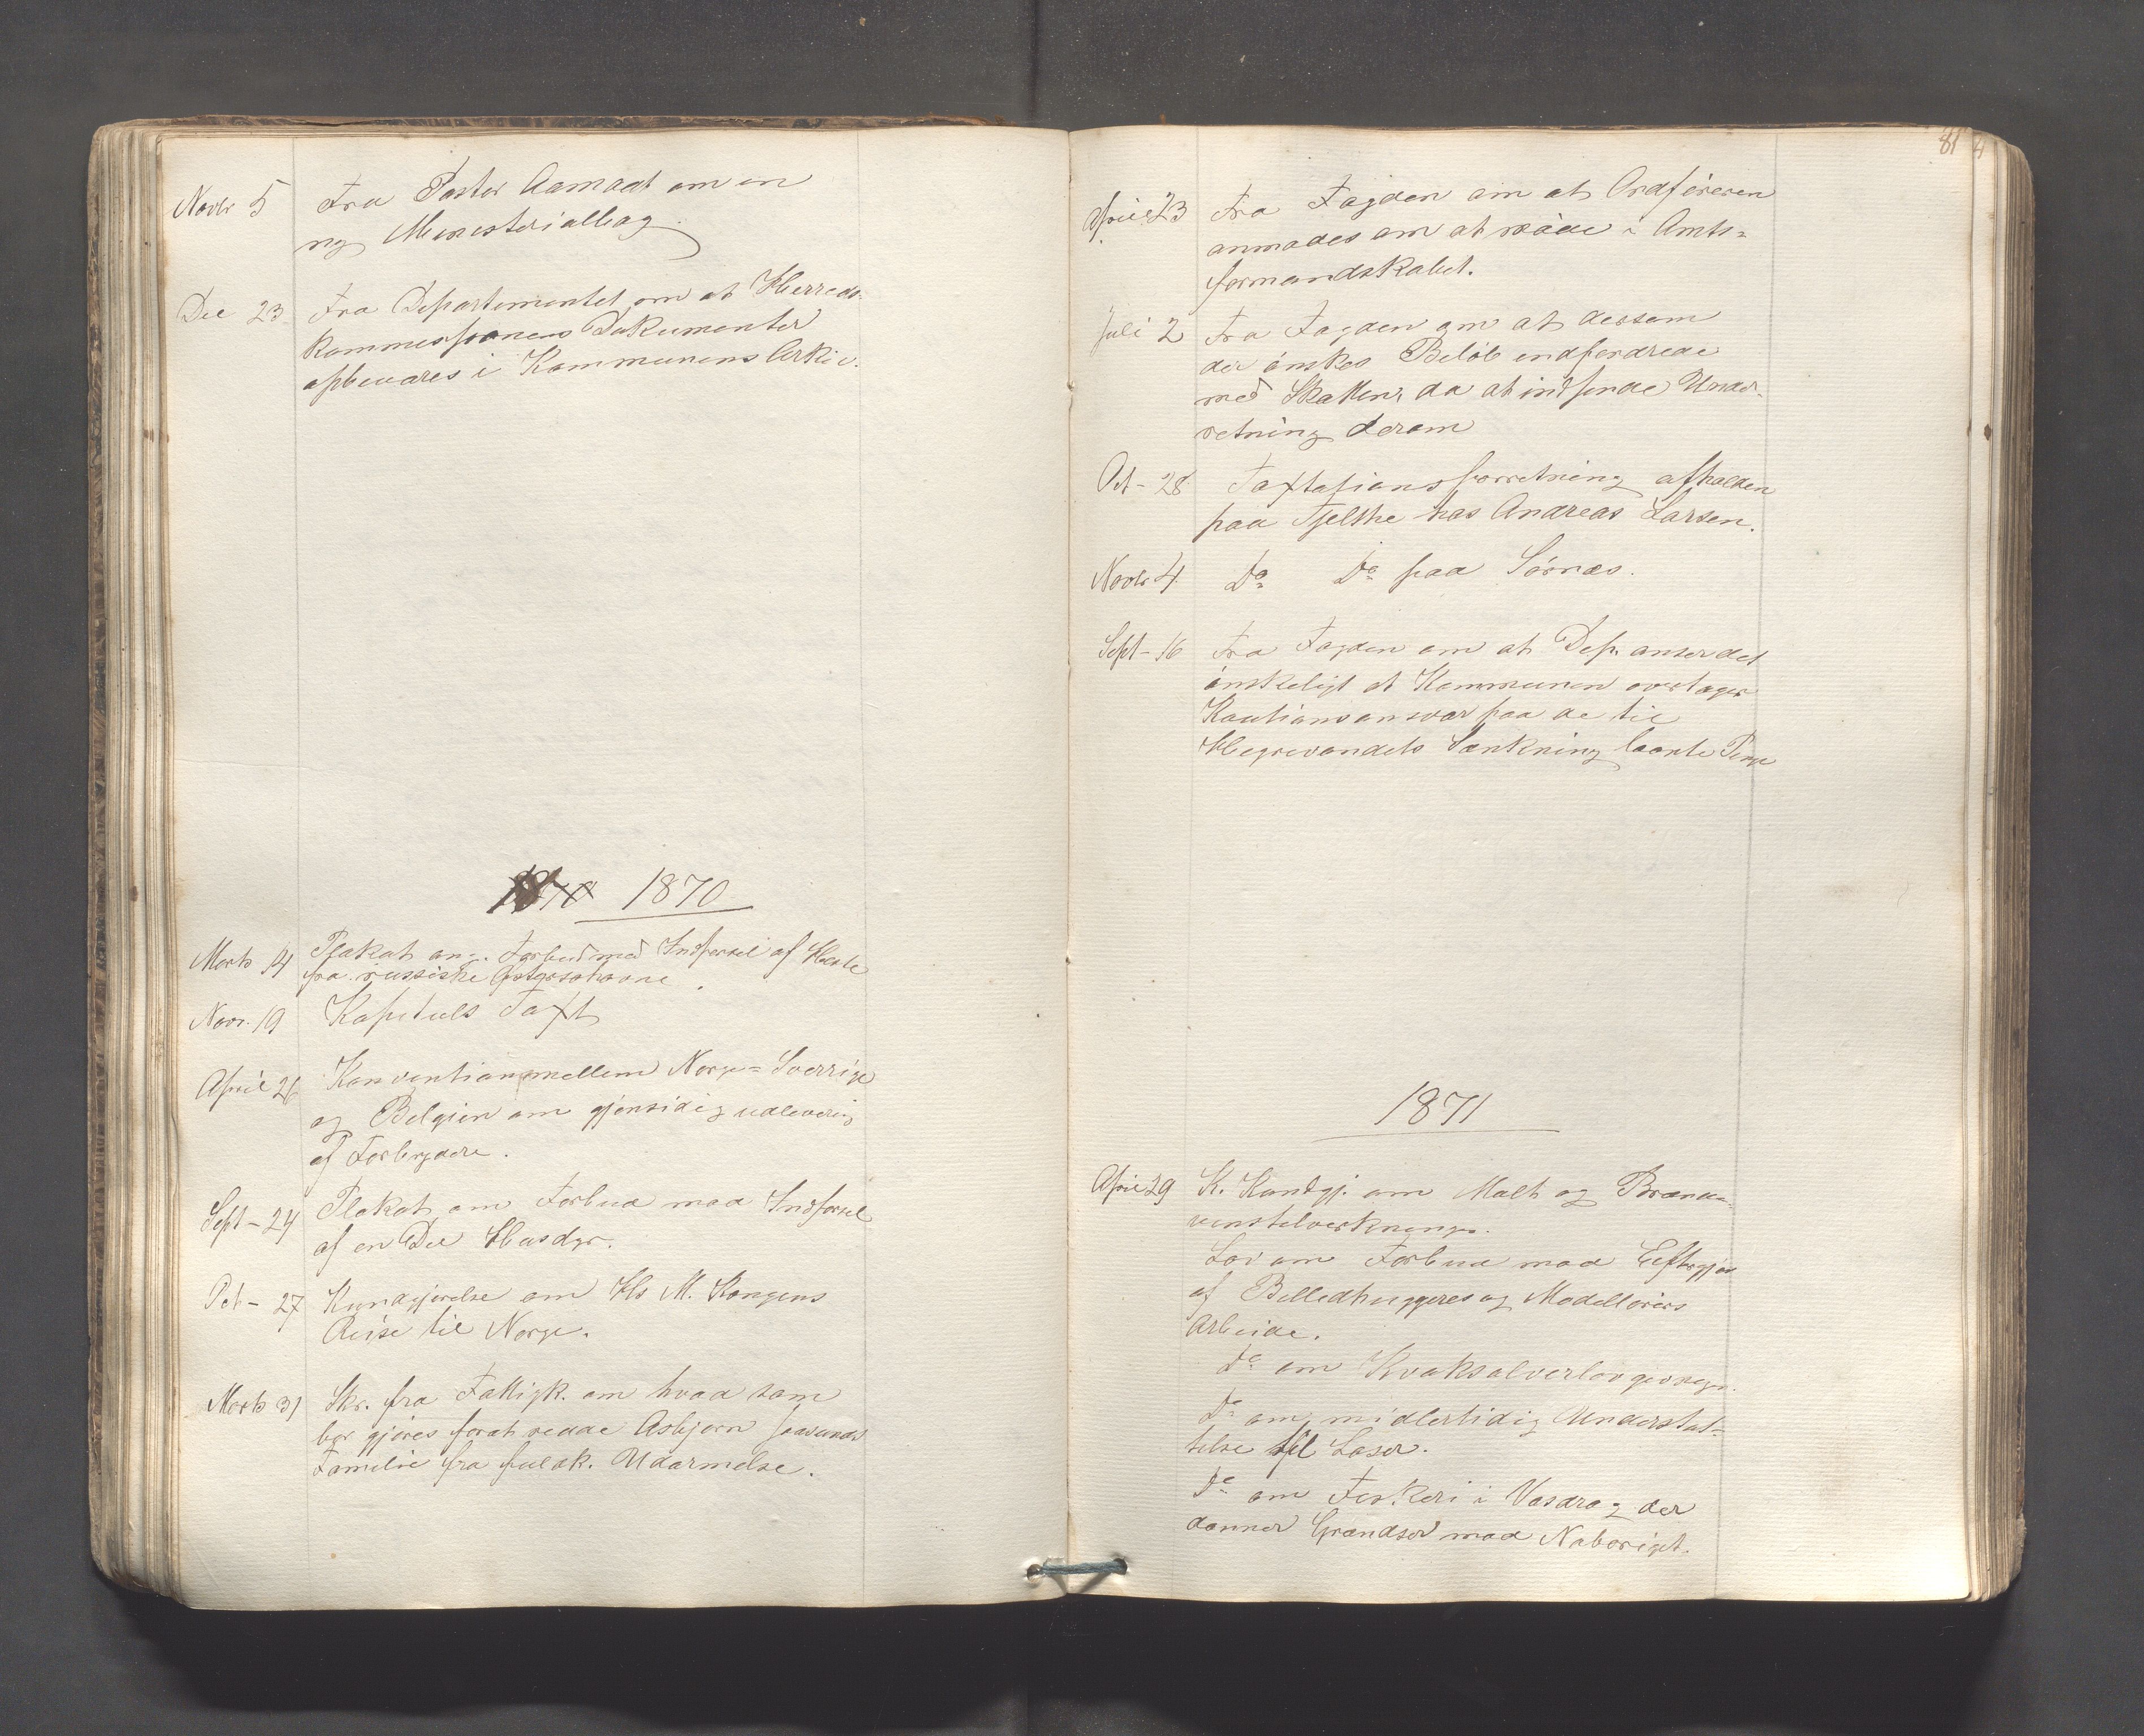 Novbr 5 Fra Pastor Aamodt om en
ny Ministerialbog.
Dec 23 Fra Departementet om at Herreds-
kommissionens Dokumenter
opbevares i Kommunens Arkiv.
1870 1870
Marts 14 Plakat ang. Forbud mod Indførsel af Heste
fra russiske Østersøhavne
Novr. 19 Kapitels Taxt
April 26 Konvention mellem Norge = Sverrige
og Belgien om gjensidig udlevering
af Forbrydere.
Sept - 24 Plakat om Forbud mod Indførsel
af en Del Husdyr.
Oct - 27 Kundgjørelse om Hs M. Kongens
Reise til Norge.
Marts 31 Skr. fra Fattigk. om hvad som
bør gjøres forat redde Asbjørn
Familie fra fuldk. Udarmelse.
81
April 23 Fra Fogden om at Ordføreren
anmodes om at møde i Amts=
formandskabet.
Juli 2 Fra Fogden om at dersom
der ønskes Beløb indfordrede
med Skatten, da at indsende Under-
retning derom
Oct - 28 Taxtationsforretning afholden
paa Tjelthe hos Andreas Larsen.
Novbr 4 Do Do paa Sørnæs.
Sept - 16 Fra Fogden om at Dep. anser det
ønskeligt at Kommunen overtager
Kautionsansvar paa de til
Hegrevandets Sænkning laante Penge
1871
April 29 K. Kundgj. om Malt og Brænde-
vinstilvirkninge.
Lov om Forbud mod Eftergjør
af Billedhuggeres og Modellørers
Arbeide.
Do om Kvaksalverlovgivnge.
Do om midlertidig Understøt=
telse til Løser.
Do om Fiskeri i Vasdrag der
danner Grændser mod Naboriget.